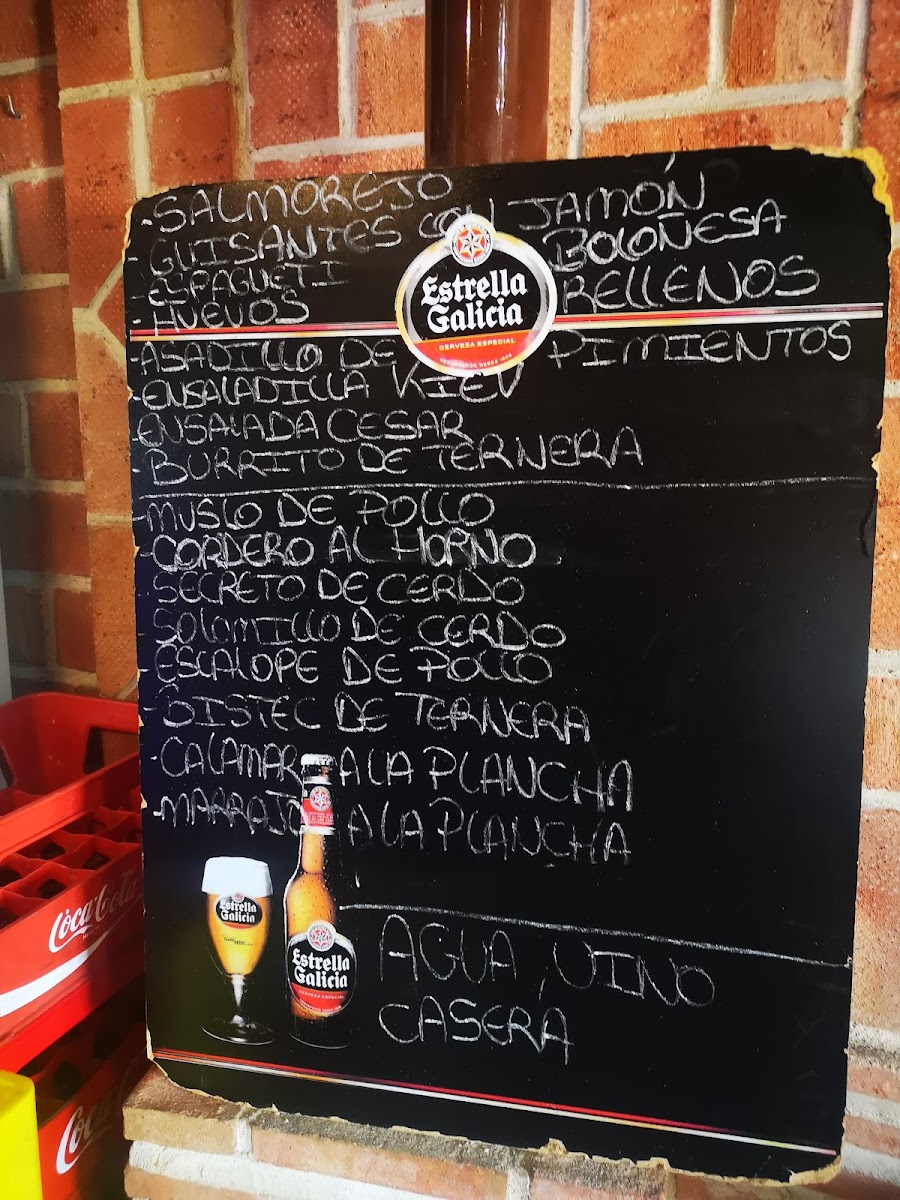 -SALMOREJO
-GUISANTES CON JAMÓN
-ESPAGUETI BOLOÑESA
-HUEVOS RELLENOS
Estrella
Galicia
CERVEZA ESPECIAL
-ASADILLO DE PIMIENTOS
-ENSALADILLA KIEV
-ENSALADA CESAR
-BURRITO DE TERNERA
-MUSLO DE POLLO
-CORDERO AL HORNO
-SECRETO DE CERDO
-SOLOMILLO DE CERDO
-ESCALOPE DE POLLO
-BISTEC DE TERNERA
-CALAMAR A LA PLANCHA
-MARRAJO A LA PLANCHA
Estrella
Galicia
Estrella
Galicia
CERVEZA ESPECIAL
AGUA, VINO
CASERA
Coca-Cola
Coca